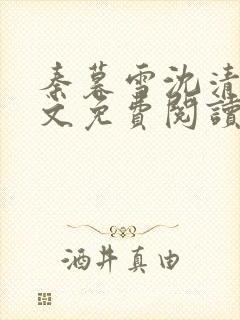 秦暮雪沈清
文免費閱讀
酒井真由